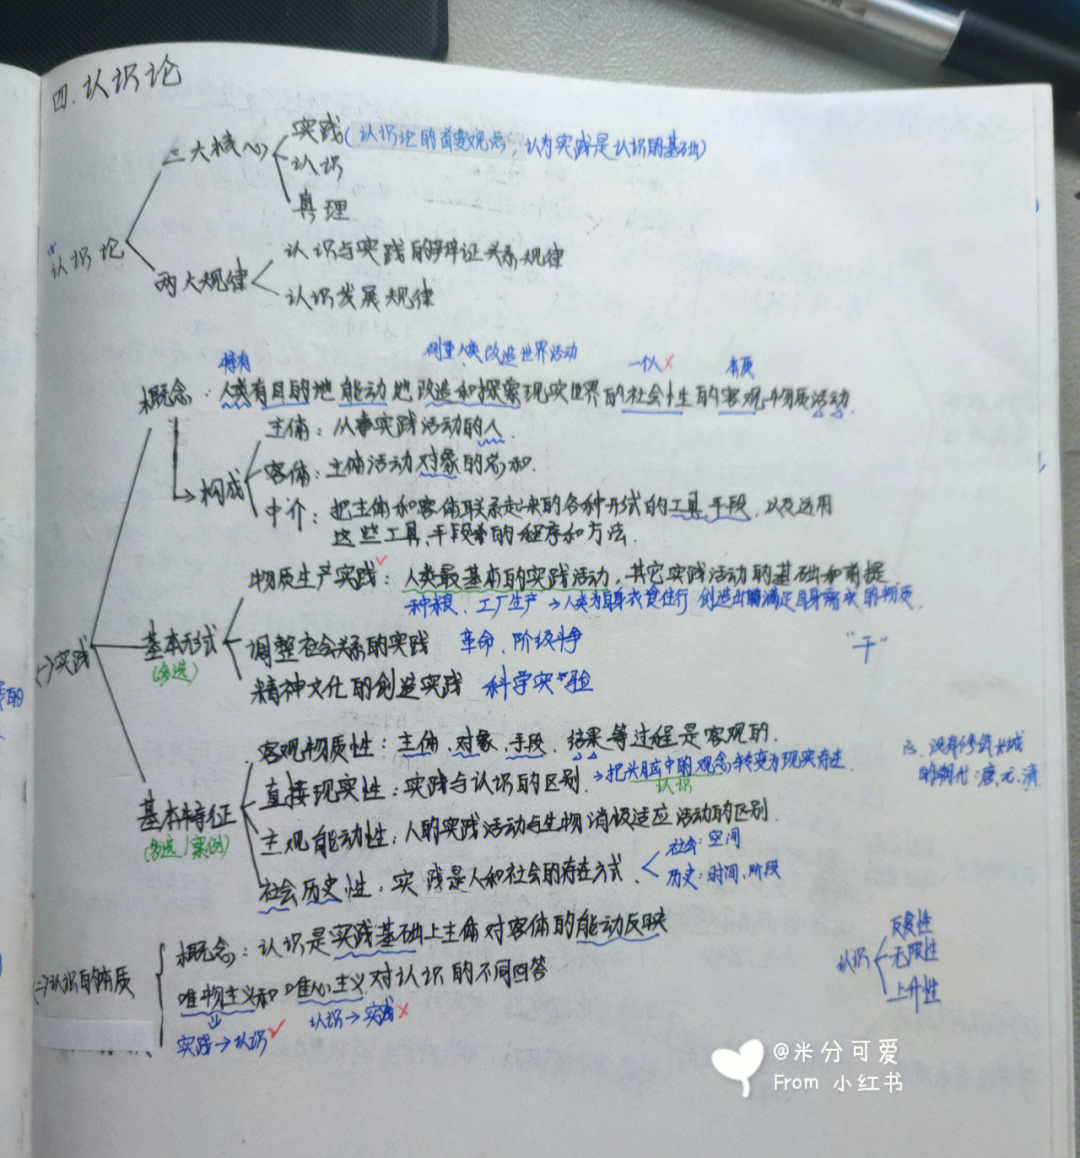 四.认识论
三大核心
实践(认识论的首要观点,认为实践是认识的基础)
认识
真理
认识论
两大规律
认识与实践的辩证关系规律
认识发展规律
特有 侧重人类改造世界活动 一个人× 有质
概念:人类有目的地能动地改造和探索现实世界的社会性的客观物质活动.
构成
主体:从事实践活动的人.
客体:主体活动对象的总和.
中介:把主体和客体联系起来的各种形式的工具、手段,以及运用
这些工具、手段的程序和方法.
(一)实践
基本形式
(多选)
物质生产实践✓:人类最基本的实践活动,其它实践活动的基础和前提
种粮、工厂生产→人类为自身衣食住行 创造出满足自身需求的物质.
调整社会关系的实践 革命、阶级斗争
精神文化的创造实践 科学实验
"干"
基本特征
(多选/案例)
客观物质性:主体、对象、手段、结果等过程是客观的.
直接现实性:实践与认识的区别.→把头脑中的观念转变为现实存在.
认识
主观能动性:人的实践活动与生物消极适应活动的区别.
社会历史性:实践是人和社会的存在方式.
社会:空间
历史:时间、阶段
没有修筑长城
的朝代:唐、元、清
(二)认识的本质
概念:认识是实践基础上主体对客体的能动反映
唯物主义和唯心主义对认识的不同回答
实践→认识✓
认识→实践×
认识
反复性
无限性
上升性
@米分可爱
From 小红书